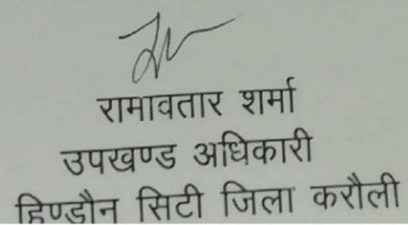 रामावतार शर्मा
उपखण्ड अधिकारी
हिण्डौन सिटी जिला करौली